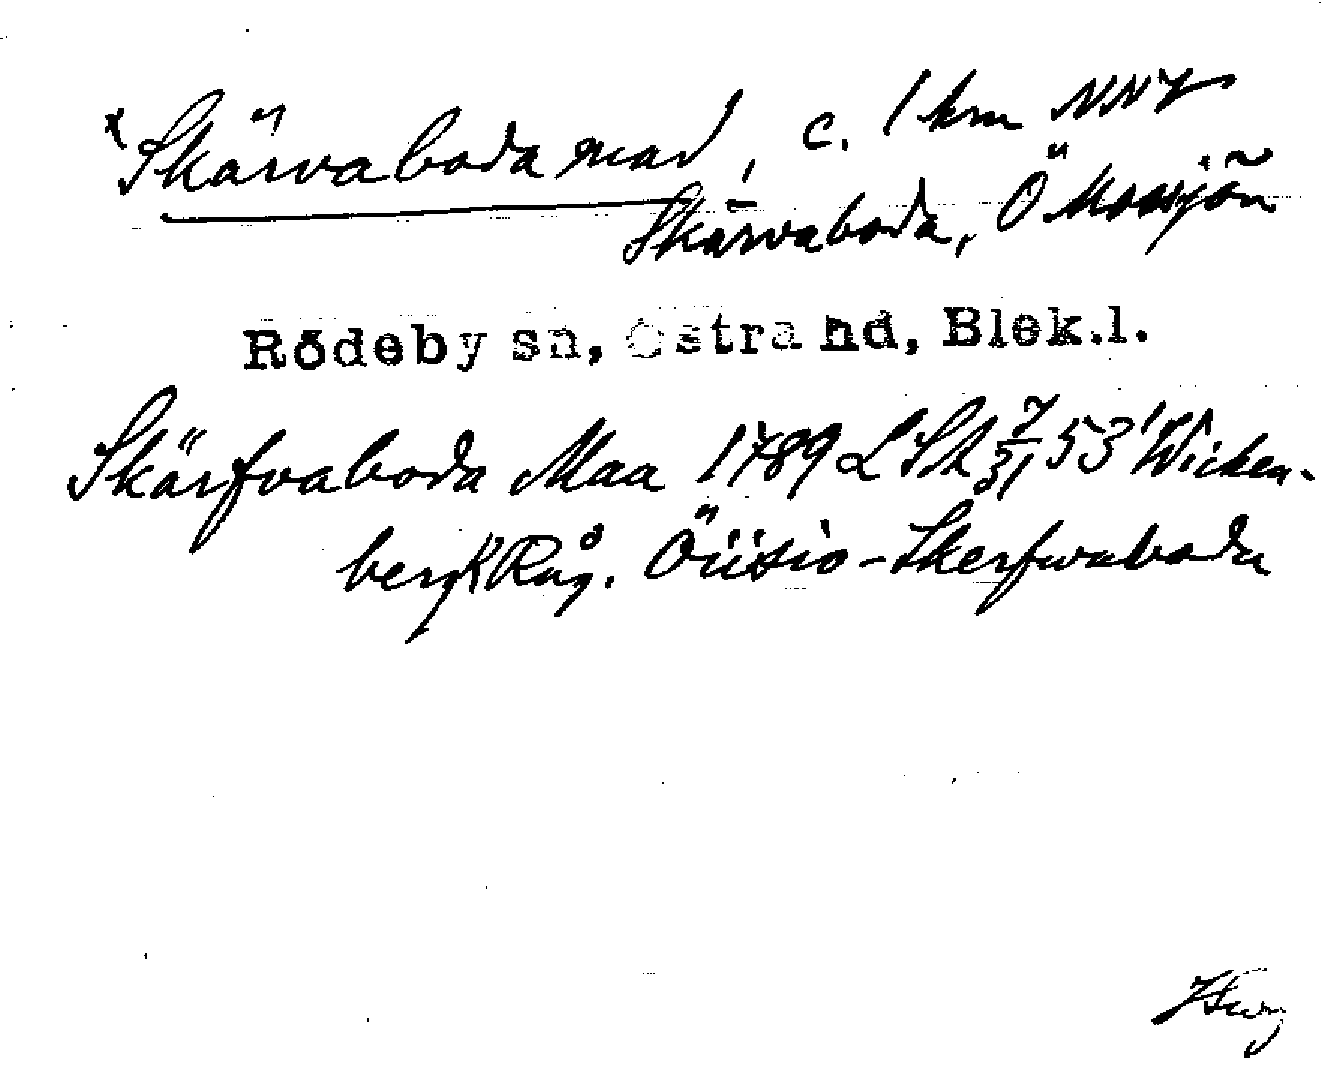 x Skärvaboda mad, c. 1 km NNV
Skärvaboda, Ö Maasjön
Rödeby sn, Östra hd, Blek.l.
Skärfvaboda Maa 1789 LSk 7/31 53 Wicken-
berg KRåg. Ö